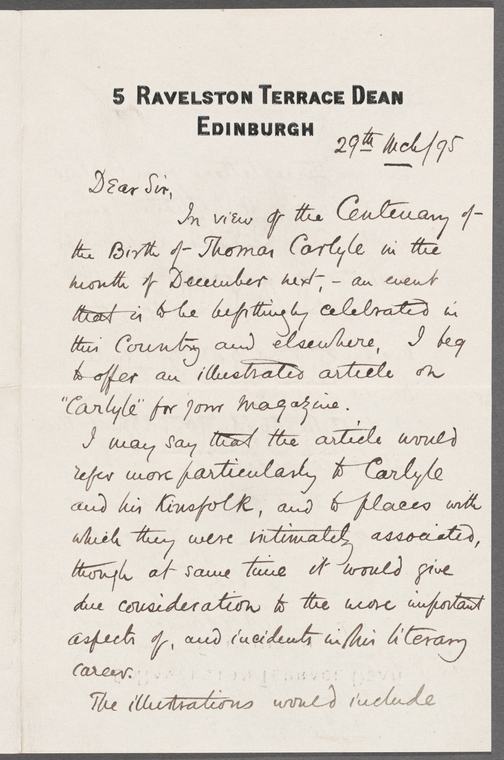 5 RAVELSTON TERRACE DEAN
EDINBURGH
29th Mch/95
Dear Sir,
In view of the Centenary of
the Birth of Thomas Carlyle in the
month of December next, - an event
that is to be befittingly celebrated in
this Country and elsewhere, I beg
to offer an illustrated article on
"Carlyle" for your Magazine.
I may say that the article would
refer more particularly to Carlyle
and his Kinsfolk, and to places with
which they were intimately associated,
though at same time it would give
due consideration to the more important
aspects of, and incidents in his literary
career.
The illustrations would include